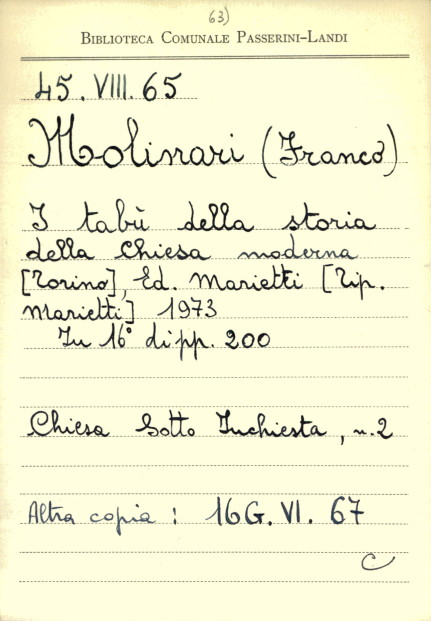 63)
BIBLIOTECA COMUNALE PASSERINI-LANDI
45. VIII. 65
Molinari (Franco)
I tabù della storia
della Chiesa moderna
[Torino], Ed. Marietti [Tip.
Marietti] 1973
In 16° di pp. 200
Chiesa Sotto Inchiesta, n. 2
Altra copia : 16G. VI. 67
C